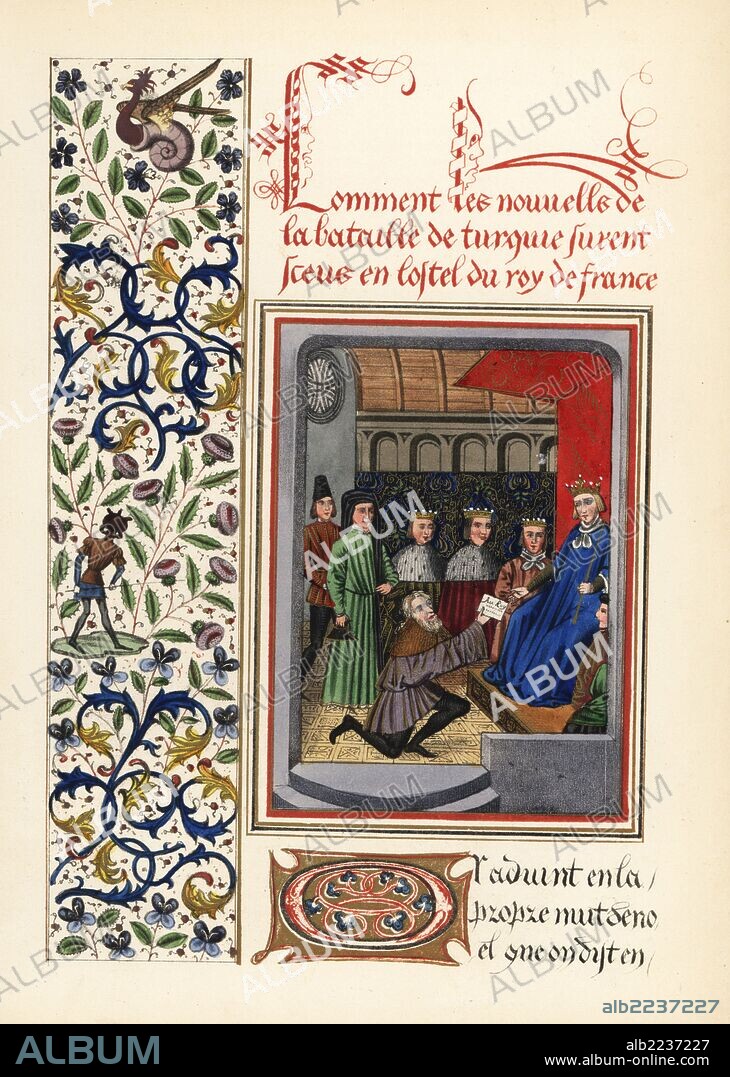 Comment les nouvells de
la bataille de turquie furent
sceus en lostel du roy de france
Or aduint en la
propre nuit de no
el que on dist en
alb2237227
ALBUM
alb2237227
www.album-online.com